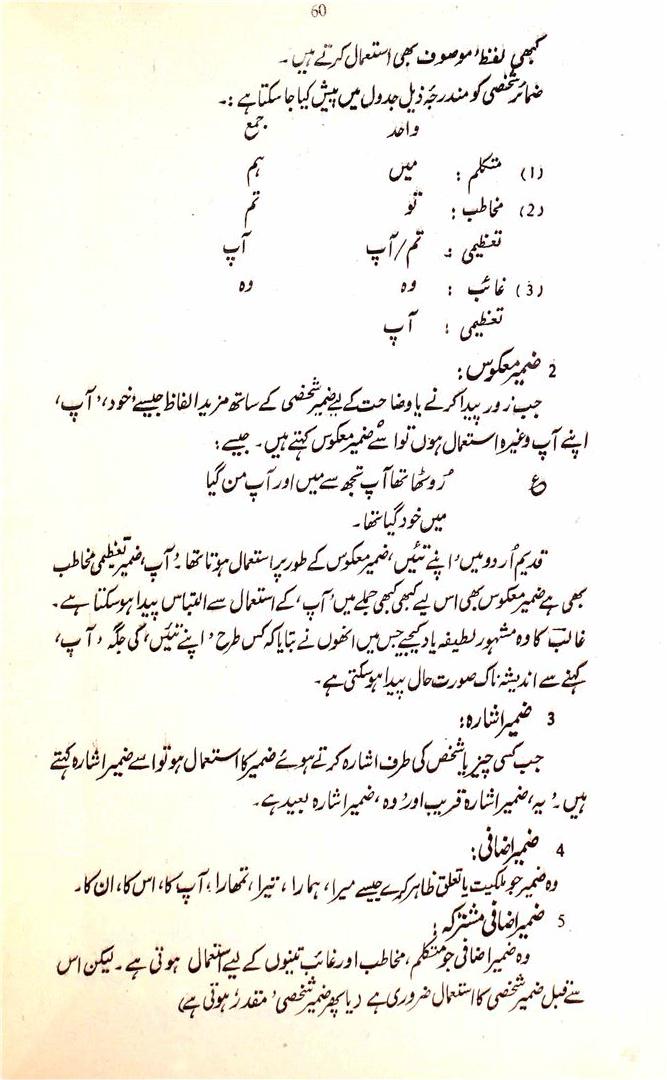 60
کبھی لفظ 'موصوف' بھی استعمال کرتے ہیں ۔
ضمائر شخصی کو مندرجۂ ذیل جدول میں پیش کیا جا سکتا ہے :۔
واحد جمع
(1) متکلم : میں ہم
(2) مخاطب : تو تم
تعظیمی : تم/آپ آپ
(3) غائب : وہ وہ
تعظیمی : آپ
2 ضمیر معکوس :
جب زور پیدا کرنے یا وضاحت کے لیے ضمیر شخصی کے ساتھ مزید الفاظ جیسے 'خود'، 'آپ'،
اپنے آپ وغیرہ استعمال ہوں تو اُسے ضمیر معکوس کہتے ہیں ۔ جیسے :
ع رُوٹھا تھا آپ تجھ سے میں اور آپ من گیا
میں خود گیا تھا ۔
قدیم اُردو میں 'اپنے تئیں' ضمیر معکوس کے طور پر استعمال ہوتا تھا ۔ 'آپ' ضمیر تعظیمی مخاطب
بھی ہے ضمیر معکوس بھی اس لیے کبھی کبھی جملے میں 'آپ' کے استعمال سے التباس پیدا ہو سکتا ہے ۔
غالب کا وہ مشہور لطیفہ یاد کیجیے جس میں انھوں نے بتایا کہ کس طرح 'اپنے تئیں' کی جگہ 'آپ'
کہنے سے اندیشہ ناک صورت حال پیدا ہو سکتی ہے ۔
3 ضمیر اشارہ :
جب کسی چیز یا شخص کی طرف اشارہ کرتے ہوئے ضمیر کا استعمال ہو تو اسے ضمیر اشارہ کہتے
ہیں ۔ 'یہ' ضمیر اشارۂ قریب اور 'وہ' ضمیر اشارہ بعید ہے ۔
4 ضمیر اضافی :
وہ ضمیر جو ملکیت یا تعلق ظاہر کرے جیسے میرا، ہمارا، تیرا، تمھارا، آپ کا، اس کا، ان کا ۔
5 ضمیر اضافی مشترکہ :
وہ ضمیر اضافی جو متکلم، مخاطب اور غائب تینوں کے لیے استعمال ہوتی ہے ۔ لیکن اس
سے قبل ضمیر شخصی کا استعمال ضروری ہے (یا پھر ضمیر شخصی 'مقدر' ہوتی ہے)